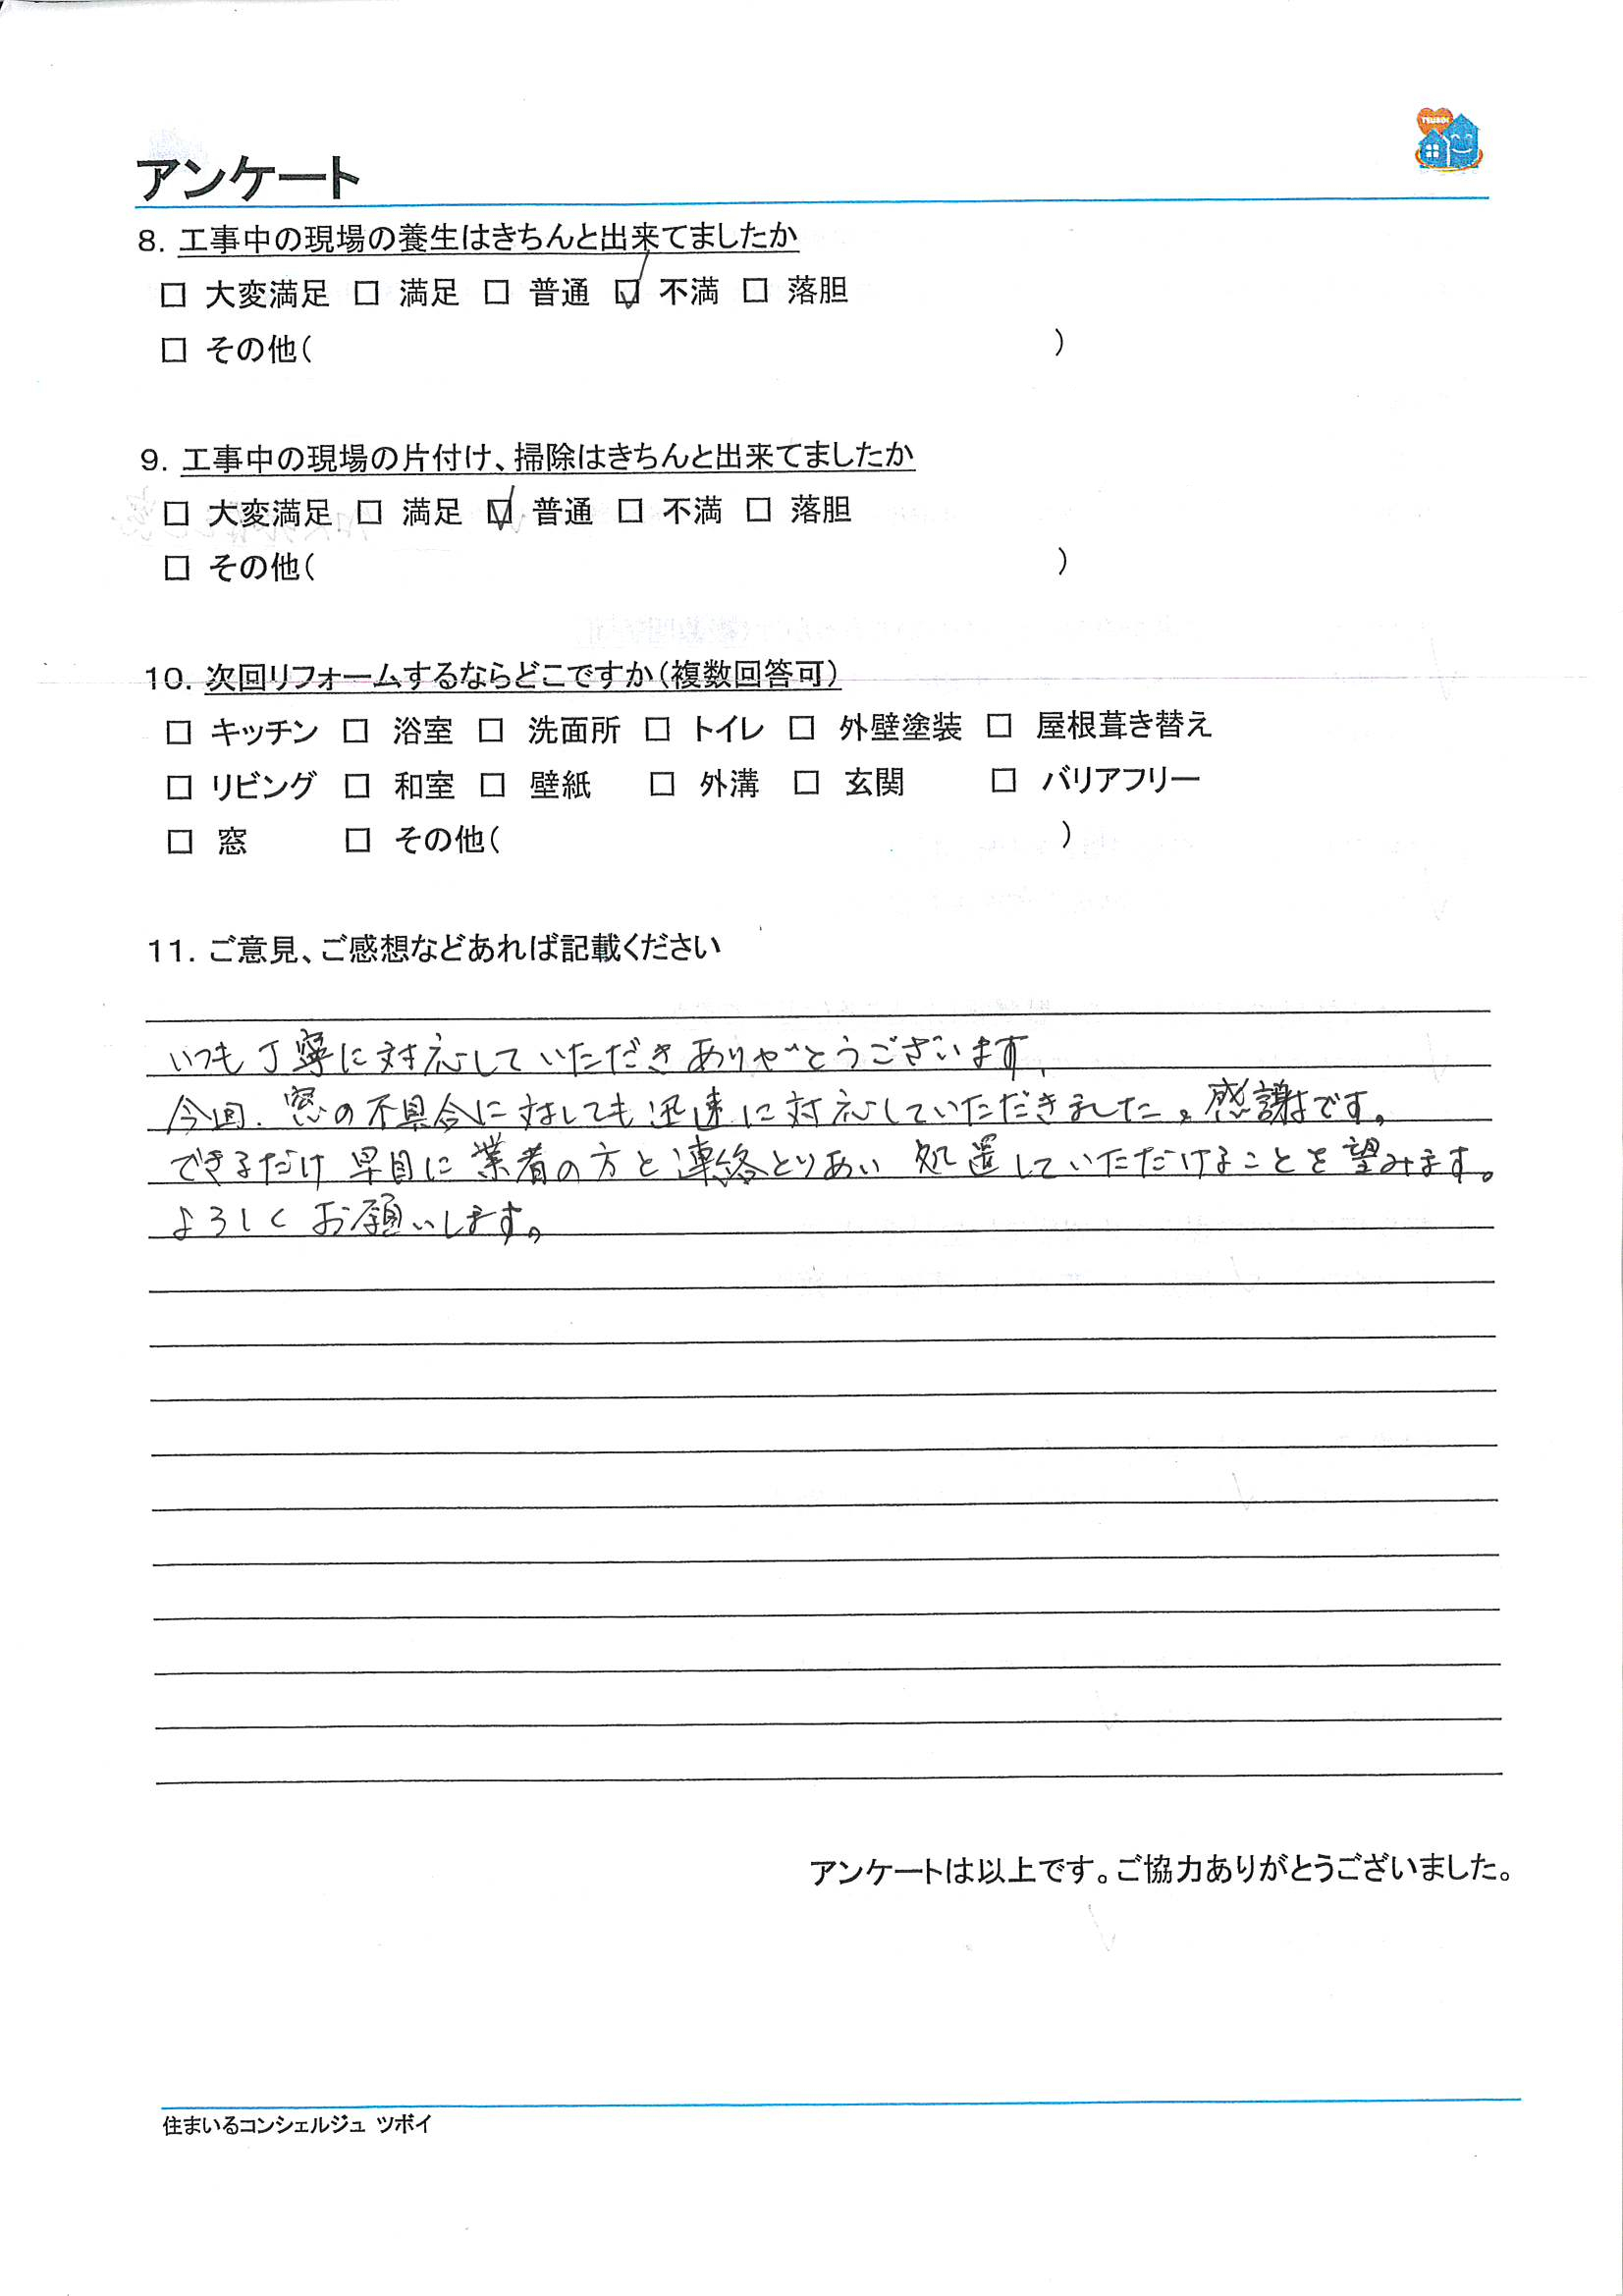 TSUBOI
アンケート
8. 工事中の現場の養生はきちんと出来てましたか
□ 大変満足 □ 満足 □ 普通 ☑ 不満 □ 落胆
□ その他( )
9. 工事中の現場の片付け、掃除はきちんと出来てましたか
□ 大変満足 □ 満足 ☑ 普通 □ 不満 □ 落胆
□ その他( )
10. 次回リフォームするならどこですか(複数回答可)
□ キッチン □ 浴室 □ 洗面所 □ トイレ □ 外壁塗装 □ 屋根葺き替え
□ リビング □ 和室 □ 壁紙 □ 外溝 □ 玄関 □ バリアフリー
□ 窓 □ その他( )
11. ご意見、ご感想などあれば記載ください
いつも丁寧に対応していただきありがとうございます。
今回、窓の不具合に対しても迅速に対応していただきました。感謝です。
できるだけ早目に業者の方と連絡とりあい処置していただけることを望みます。
よろしくお願いします。
アンケートは以上です。ご協力ありがとうございました。
住まいるコンシェルジュ ツボイ